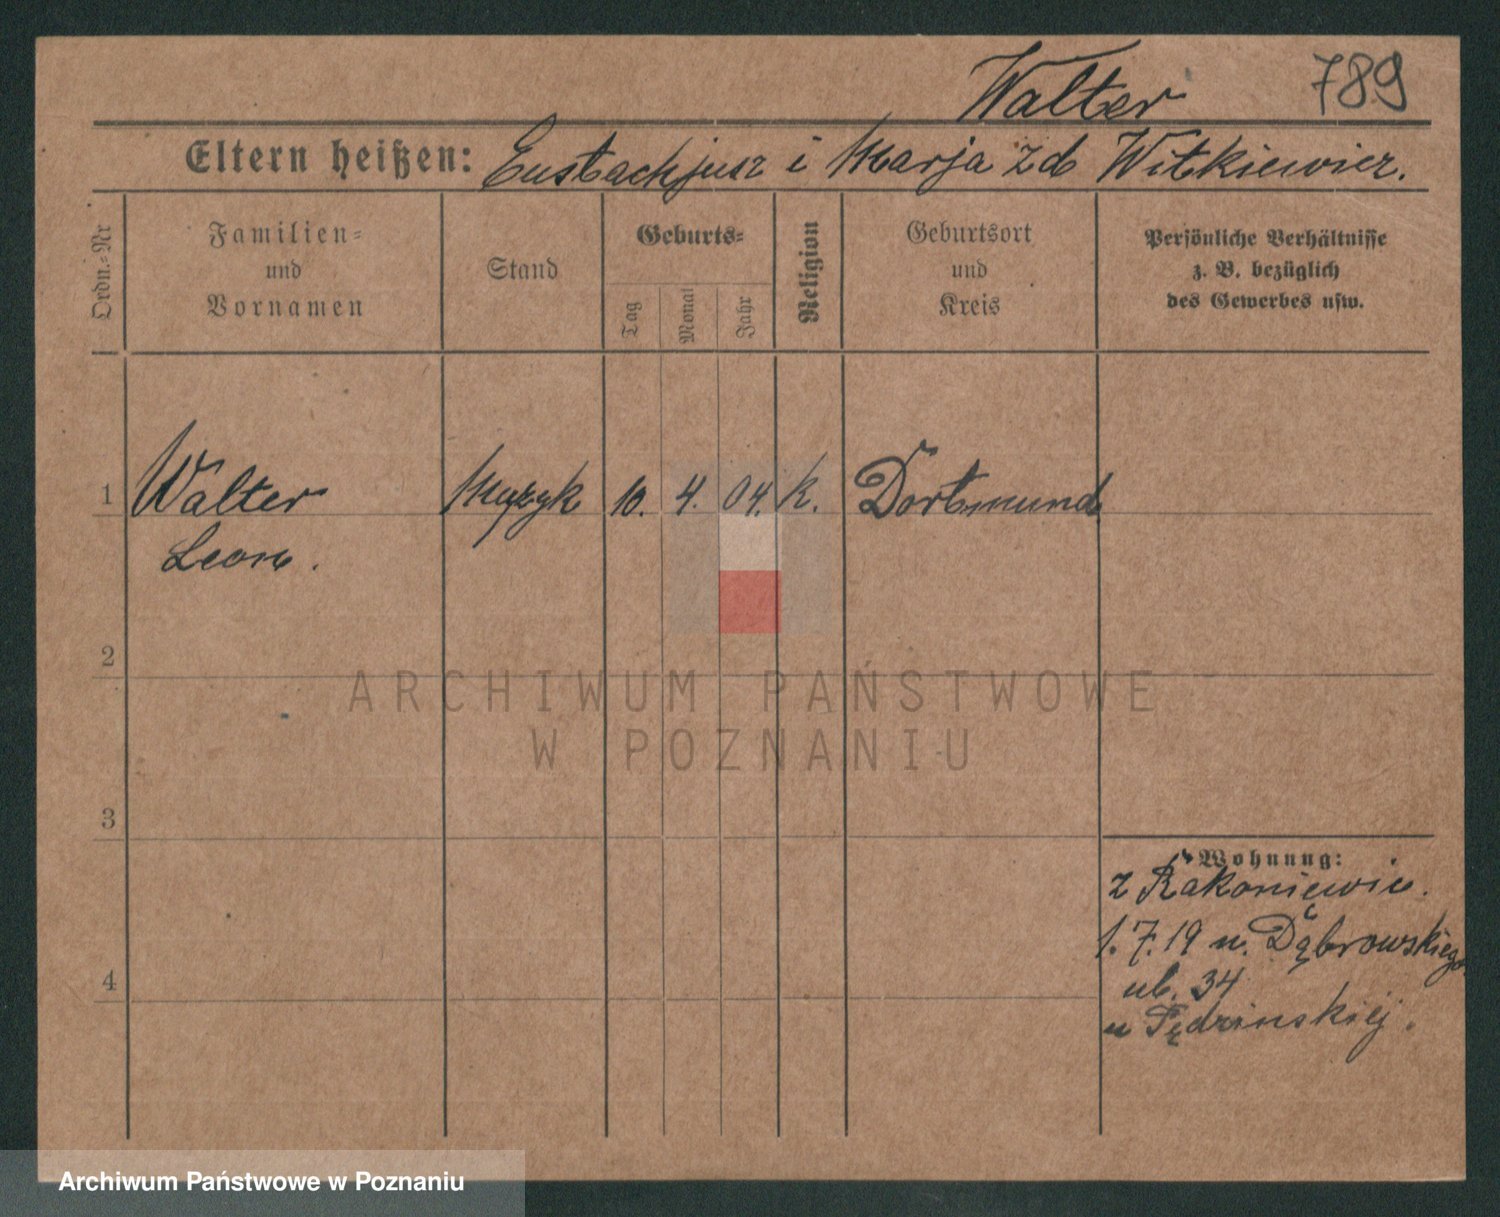 Walter 789
Eltern heißen: Eustachjusz i Marja z d. Witkiewicz.
Ordn.-Nr
Familien-
und
Vornamen
Stand
Geburts-
Tag
Monat
Jahr
Religion
Geburtsort
und
Kreis
Persönliche Verhältnisse
z. B. bezüglich
des Gewerbes usw.
1 Walter Muzyk 10. 4. 04. k. Dortmund
Leon.
2
3
4
Wohnung:
z Rakoniewic.
1.7.19 u. Dąbrowskiego
ub. 34
ARCHIWUM PAŃSTWOWE
W POZNANIU
Archiwum Państwowe w Poznaniu